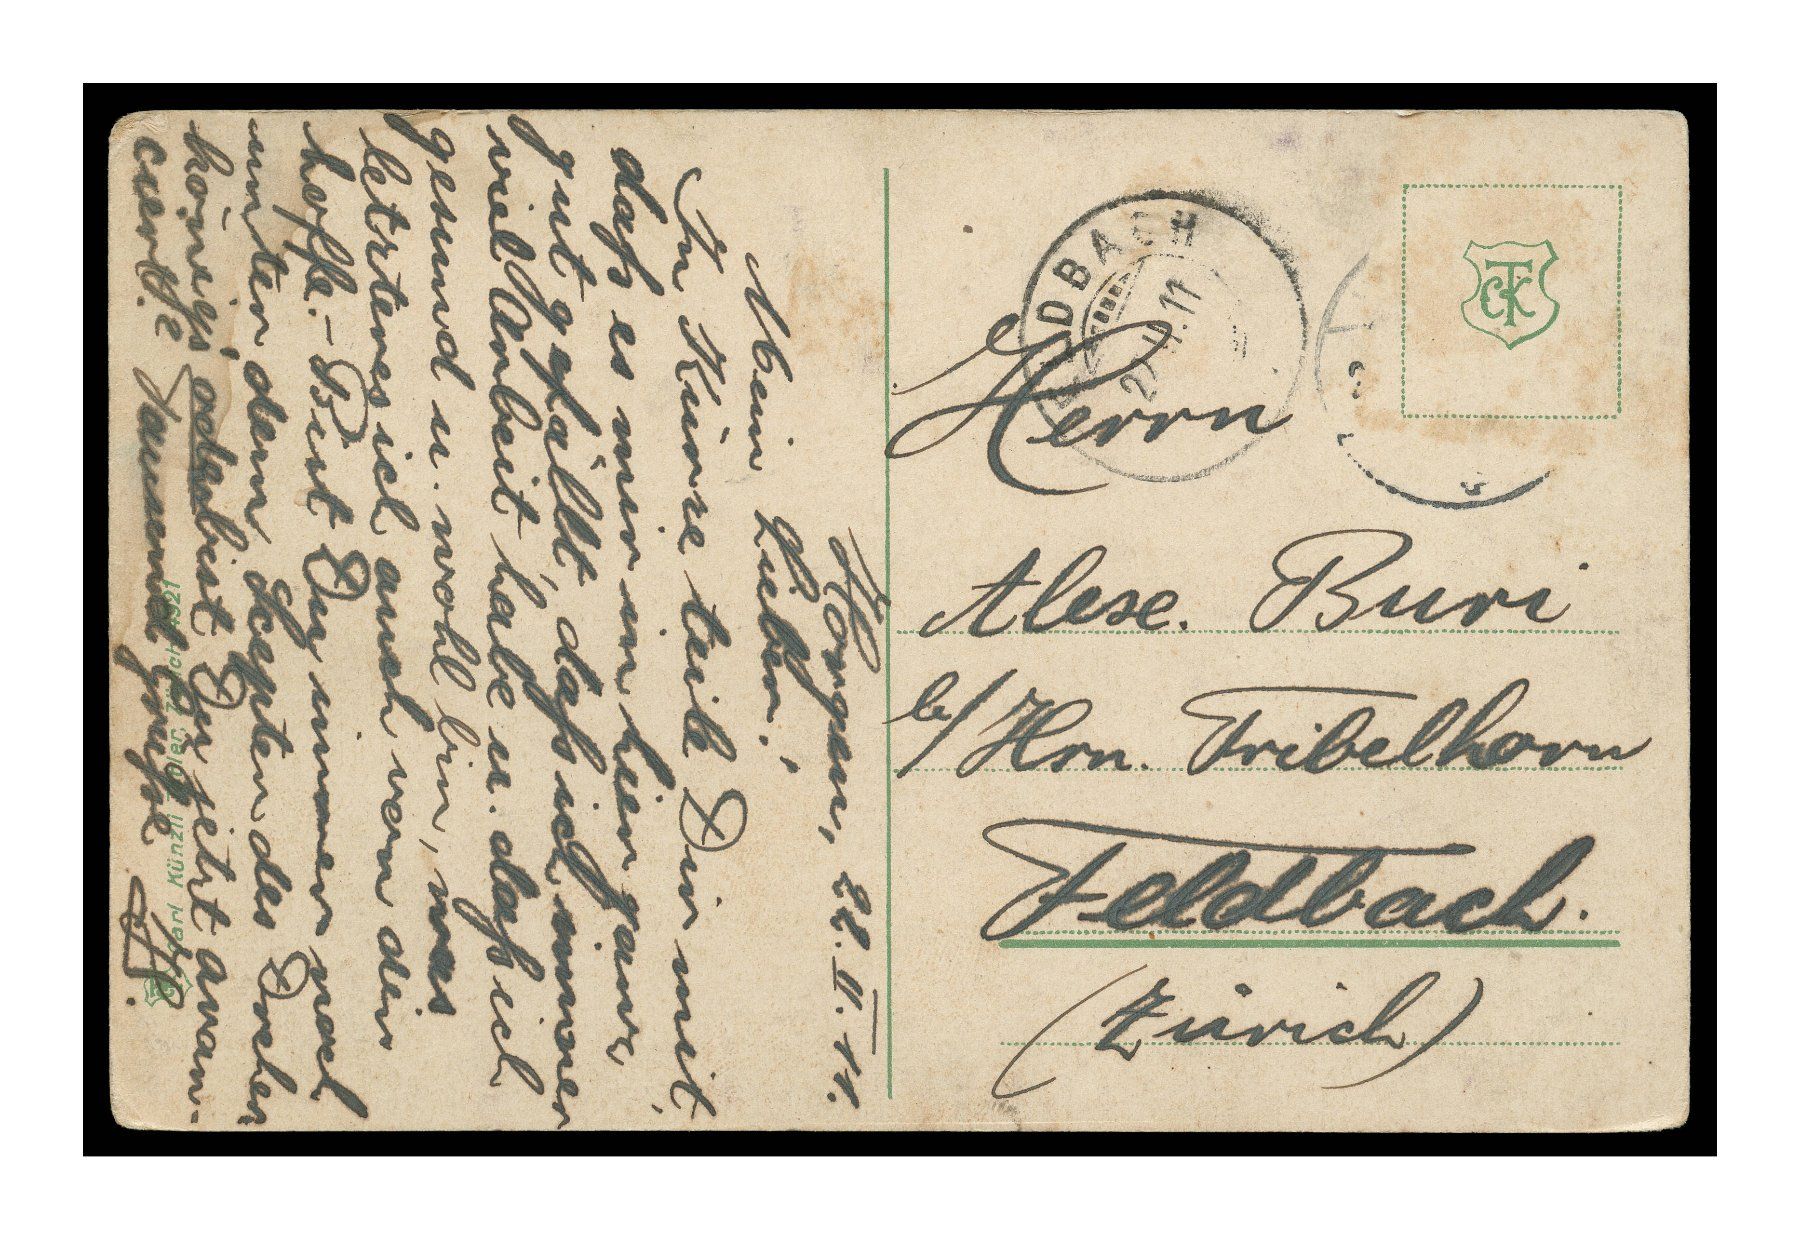 Horgen, 22. II. 11.
Mein Lieber!
In Kürze teile Dir mit,
dass es mir im hier ganz
gut gefällt, dass ich immer
viel Arbeit habe u. dass ich
gesund u. wohl bin, was
letzteres ich auch von dir
hoffe. - Bist Du immer noch
unter dem Scepter des Docher
königs, oder bist Du jetzt avan-
ciert? Jaunach grüsse
Carl Künzli, Zürich 1921
FELDBACH
22. II. 11
CTK
Herrn
Alexe. Buri
b/Hrn. Tribelhorn
Feldbach.
(Zürich)